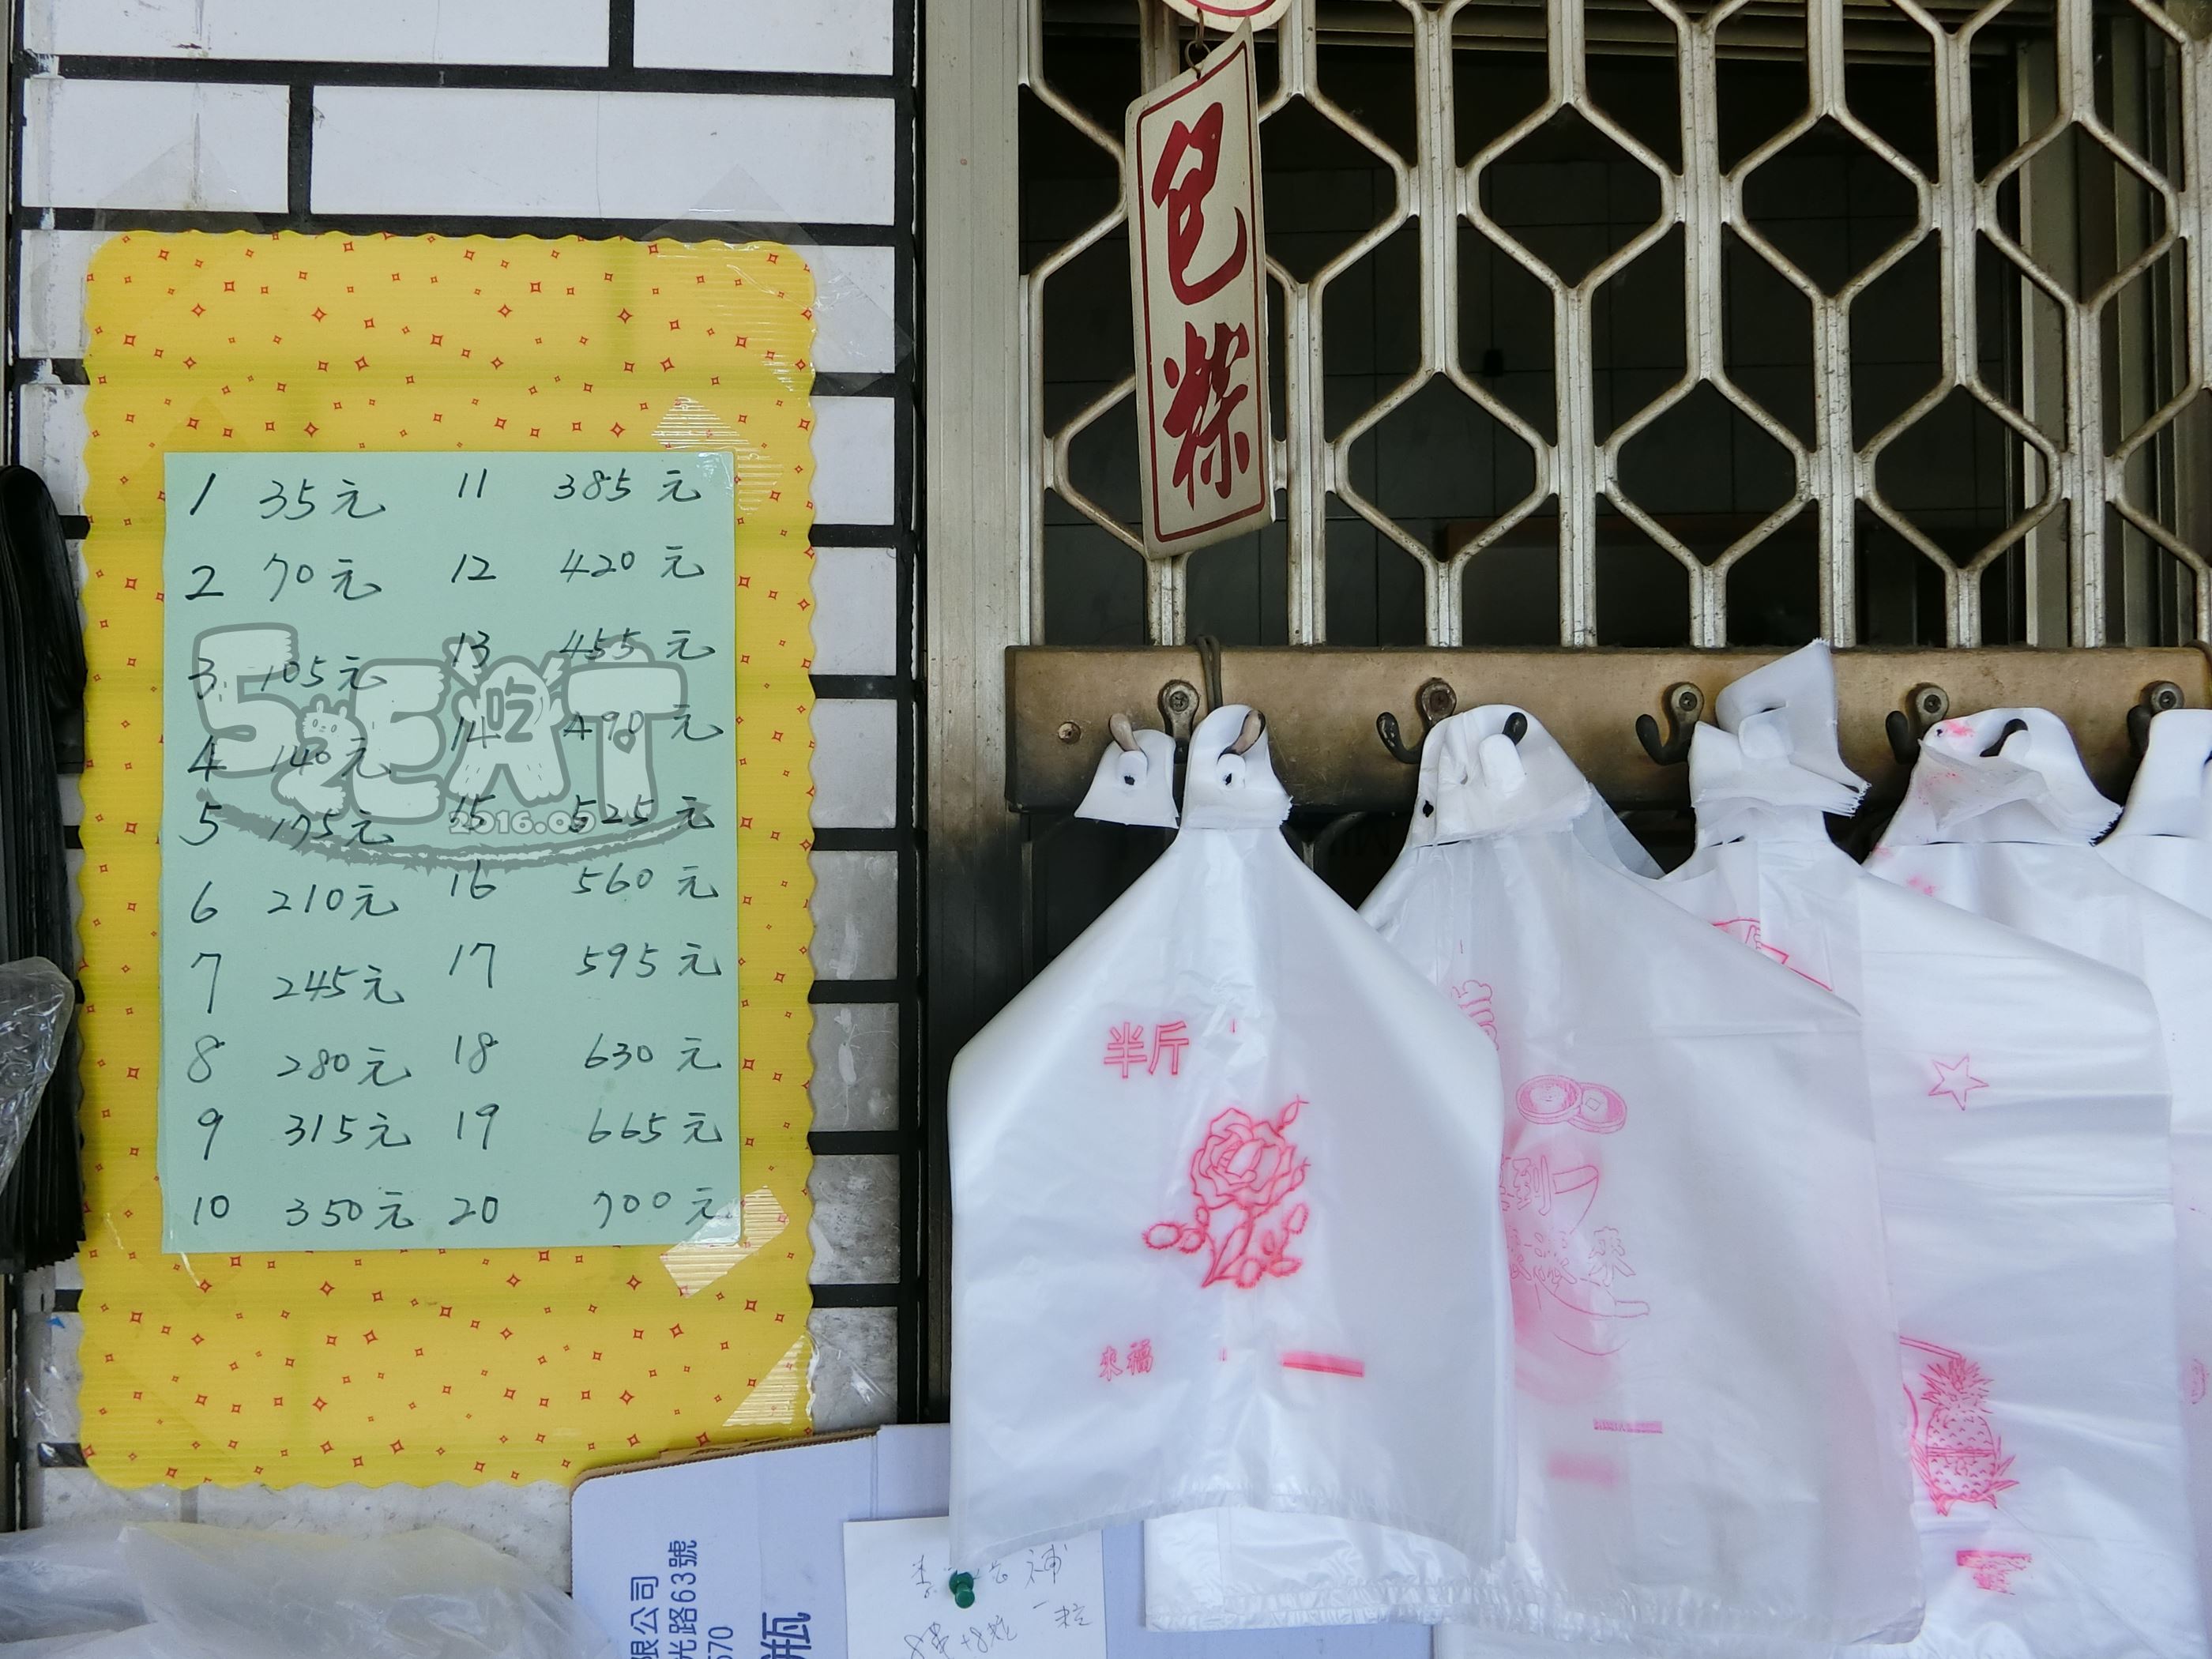 包粽
1 35元 11 385元
2 70元 12 420元
3 105元 13 455元
4 140元 14 490元
5 175元 15 525元
6 210元 16 560元
7 245元 17 595元
8 280元 18 630元
9 315元 19 665元
10 350元 20 700元
52吃EAT
2016.09
半斤
来福
到
限公司
光路63號
570
瓶
補
一粒